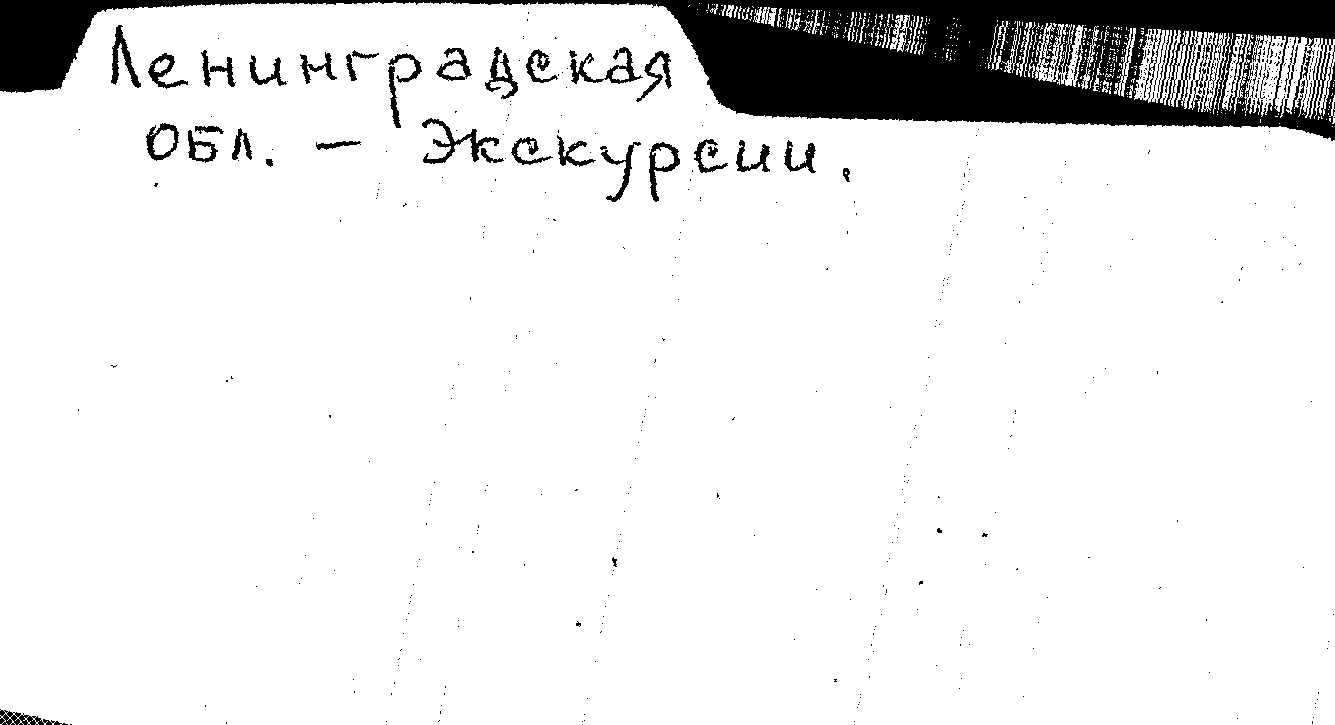 Ленинградская
обл. - Экскурсии.